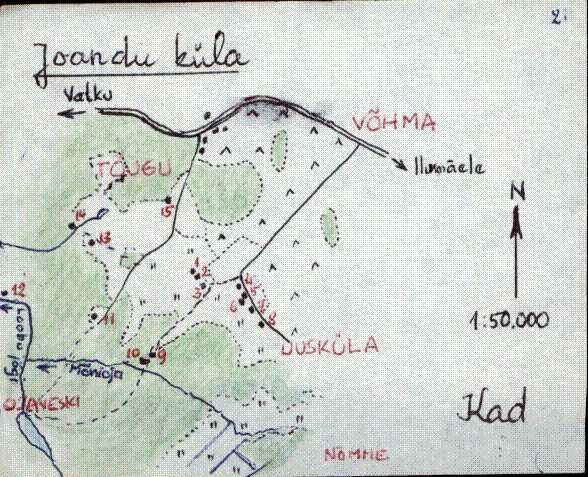 2
Joandu küla
Vatku
VÕHMA
Ilumäele
TÕUGU
N
14
15
13
1
2
3
12
11
6
8
1:50.000
Loobu jõgi
10
9
UUSKÜLA
Mõnioja
OJAVESKI
Kad
NÕMME